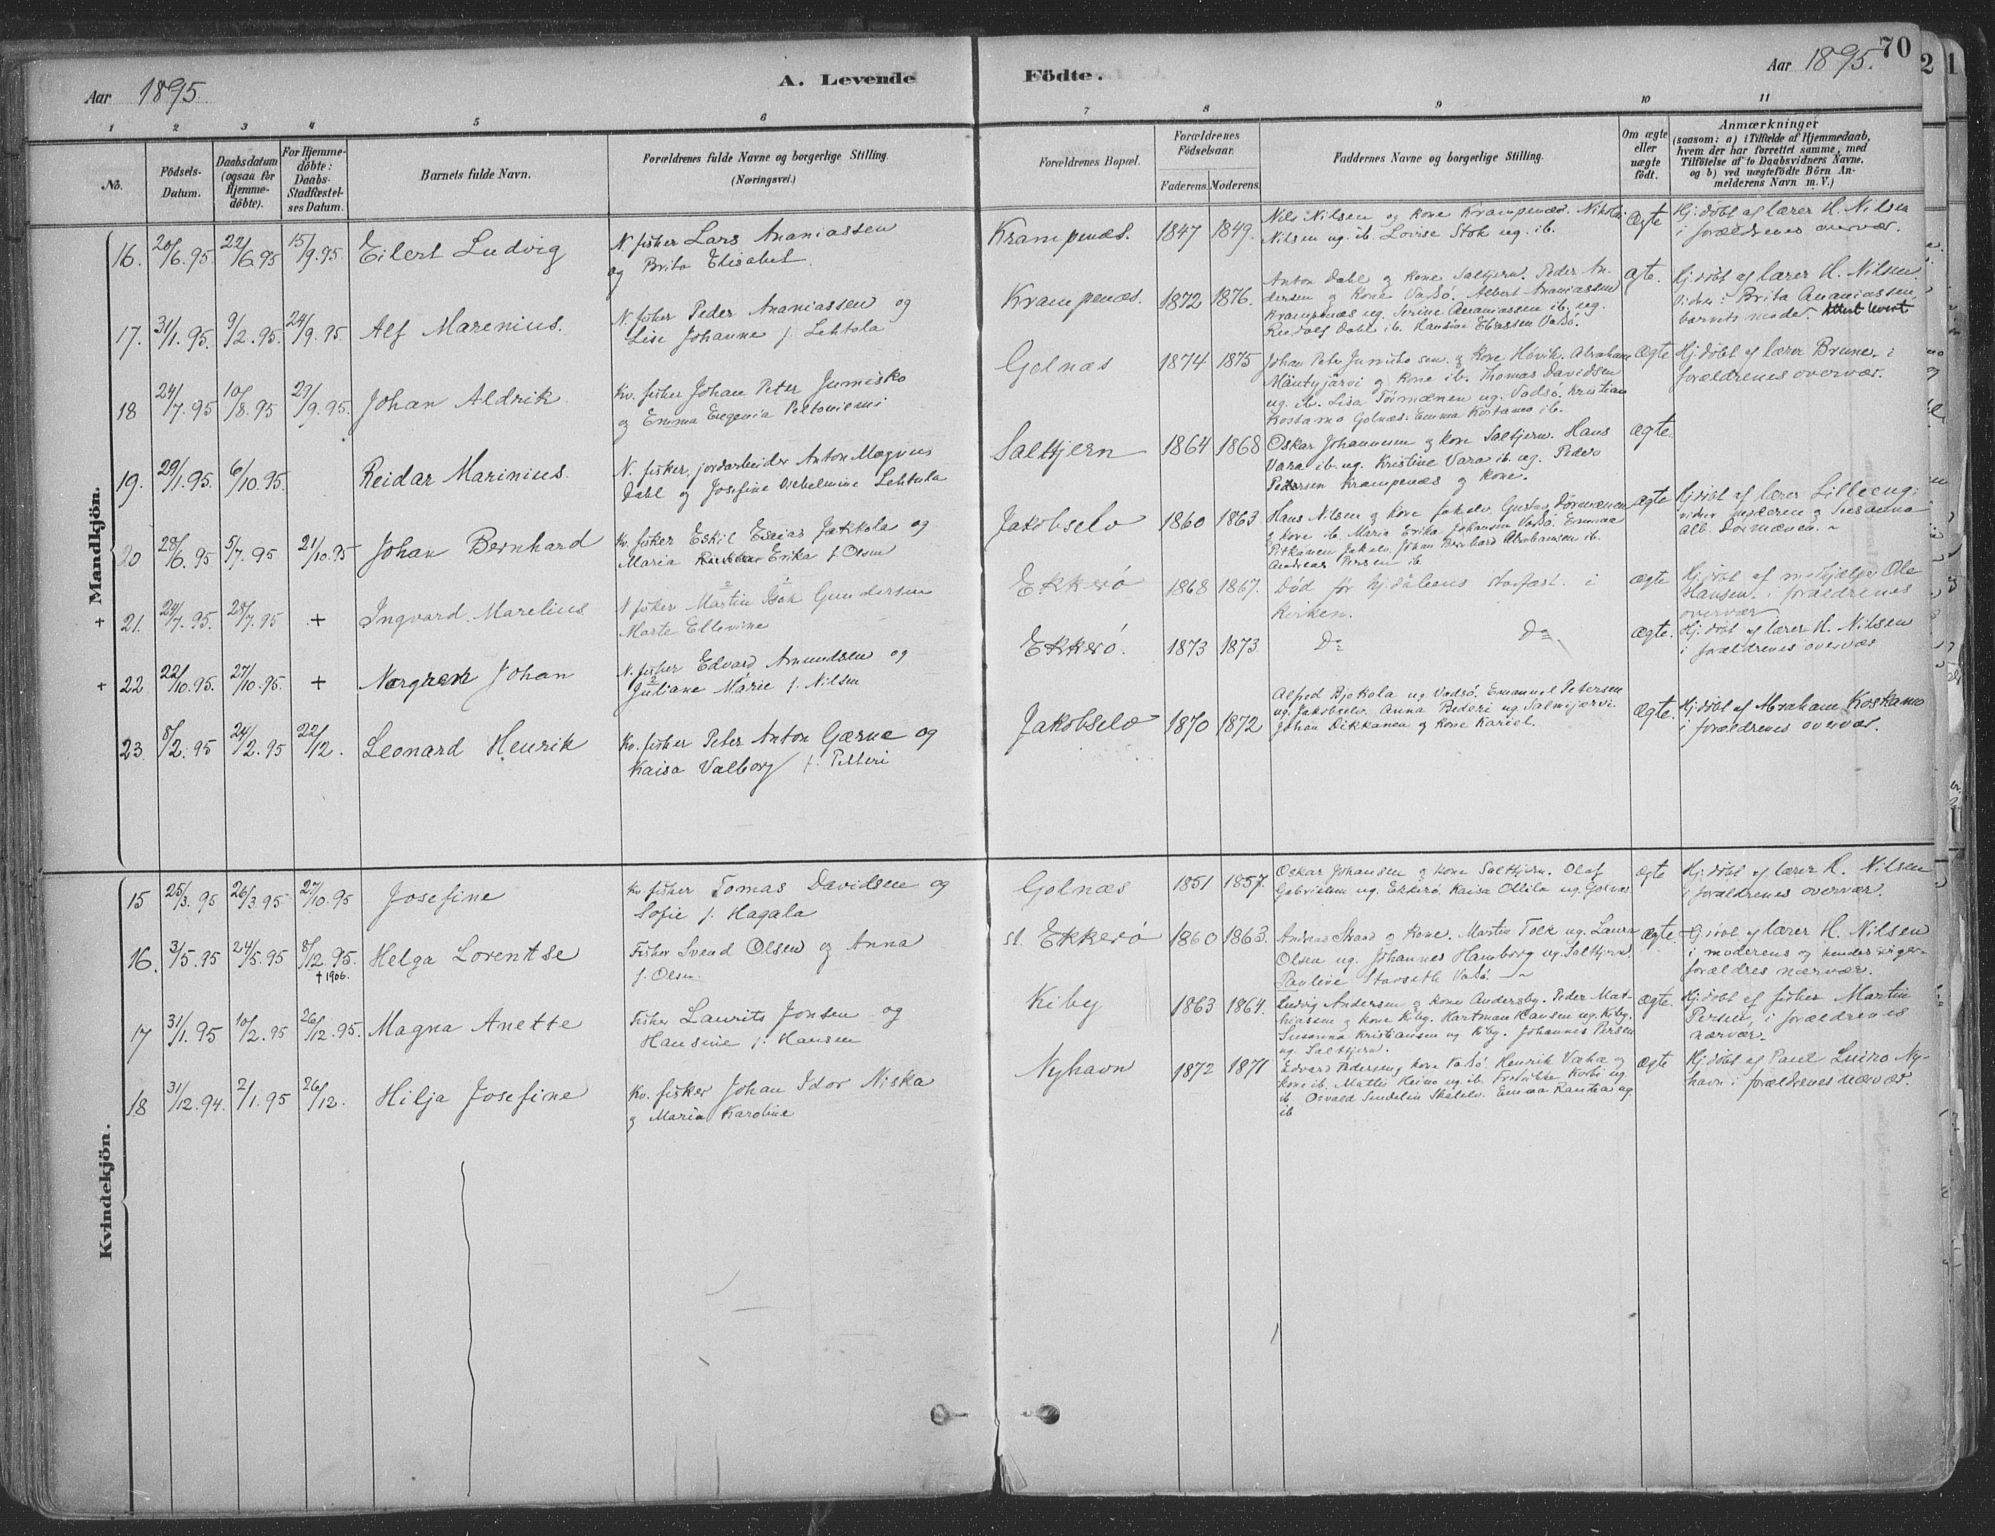 Aar 1895.
A. Levende
Födte.
Aar 1895.
70
1 2 3 4 5 6
7 8 9 10 11
No.
Födsels-Datum.
Daabsdatum (ogsaa for Hjemmedöbte).
For Hjemmedöbte: Daabs-Stadfæstelses Datum.
Barnets fulde Navn.
Forældrenes fulde Navne og borgerlige Stilling. (Næringsvei.)
Forældrenes Bopæl.
Forældrenes Födselsaar.
Faderens. Moderens.
Faddernes Navne og borgerlige Stilling.
Om ægte eller uægte födt.
Anmærkninger
(saasom: a) i Tilfælde af Hjemmedaab, hvem der har forrettet samme, med Tilföielse af to Daabsvidners Navne, og b) ved uægtefödte Börn Anmelderens Navn m. V.)
Mandkjön.
16. 20/6.95 22/6.95 15/9.95. Eilert Ludvig
N. fisker Lars Ananiassen
og Brita Elisabet.
Krampenæs. 1847 1849.
Nils Nilsen og kone Krampenæs. Nikolai
Nilsen ug. ib. Lovise Stok ug. ib.
Ægte
Hj. döbt af lærer H. Nilsen
i forældrenes overvær.
17. 31/1.95. 9/2.95. 24/9.95. Alf Marenius.
N. fisker Peder Ananiassen og
Lise Johanne f. Lehtola
Krampenæs. 1872 1876.
Anton Dahl og kone Saltjern. Peder An-
dersen og kone Vadsö. Albert Ananiassen
Krampenæs ug. Serine Ananiassen ib. ug.
Rudolf Dahl ib. Hansine Eliassen Vadsö.
Ægte.
Hj. döbt af lærer H. Nilsen
Viden: Brita Ananiassen,
barnets moder.
18 24/7.95 10/8.95 29/9.95. Johan Aldrik
Kv. fisker Johan Peter Jumisko
og Emma Eugenia Peltoniemi
Golnæs 1874 1875
Johan Peter Jumisko sen. og kone Hövik. Abraham
Mäntyjärvi og kone ib. Thomas Davidsen
ug. ib. Lisa Törmænen ug. Vadsö. Kristian
Kostamo Golnæs. Emma Kostamo ib.
Ægte
Hj. döbt af lærer Brune i
forældrenes overvær.
19. 29/1.95. 6/10.95. Reidar Marinius.
N. fisker, jordarbeider Anton Magnus
Dahl og Josefine Vilhelmine Lehtola
Saltjern 1864 1868
Oskar Johannesen og kone Saltjern. Hans
Vara ib. ug. Kristine Vara ib. ug. Peder
Pedersen Krampenæs og kone.
Ægte.
20 28/6.95 5/7.95 21/10.95 Johan Bernhard
Kv. fisker Eskil Esaias Jatkola og
Maria Erika f. Olsen
Jakobselv 1860 1863.
Hans Nilsen og kone Jakelv. Gustav Dörmænen
og kone ib. Maria Erika Johansen Vadsö. Emma
Pitkänen Jakelv. Johan Bernhard Abrahamsen ib.
Andreas Persen ib
Ægte
Hj. döbt af lærer Lilleeng.
vidner: faderen og Susanna
Alb. Dörmænen.
+ 21. 24/7.95. 28/7.95 + Ingvard Marelius
N fisker Martin Isak Gundersen
Marte Ellevine
Ekkerö 1868 1867.
Död för hjdaabens stadfæst. i
kirken.
Ægte
Hj. döbt af m. hjælp Ole
Hansen i forældrenes
overvær
+ 22 22/10.95. 27/10.95. + Johan
N. fisker Edvard Amundsen og
Juliane Marie f. Nilsen
Ekkerö. 1873 1873
Do Do
Ægte.
Hj. döbt af lærer H. Nilsen
i forældrenes overvær
23 8/2.95 24/2.95 22/12. Leonard Henrik
Kv. fisker Peter Anton Gærne og
Kaisa Valborg f. Petteri
Jakobselv 1870 1872
Alfred ug Vadsö. Emanuel Petersen
ug. Jakobselv. Anna Pederi ug Salmijærvi
Johan Dikkanen og kone Kariel.
Ægte.
Hj. döbt af Abraham Koskamo
i forældrenes overvær.
Kvindekjön.
15 25/3.95 26/3.95 27/10.95 Josefine
Kv. fisker Tomas Davidsen og
Sofie f. Hagala
Golnæs 1851 1857.
Oskar Johansen og kone Saltjern. Olaf
Gabrielsen ug. Ekkerö. Kaisa Ollila ug. Golnæs
Ægte
Hj. döbt af lærer H. Nilsen
i forældrenes overvær.
16. 3/5.95 24/5.95 8/12.95. Helga Lorentse
† 1906.
Fisker Svend Olsen og Anna
f. Olsen
St. Ekkerö 1860 1863.
Andreas Strand og kone. Martin Tolk ug. Laura
Olsen ug. Johannes Hamborg ug. Saltjern
Pauline Stavseth Vadsö
Ægte.
Hj. döbt af lærer H. Nilsen
i moderens og hendes sviger-
forældres nærvær.
17 31/1.95 10/2.95 26/12.95. Magna Anette
Fisker Laurits Jonsen og
Hansine f. Hansen
Kiby 1863 1864.
Ludvig Andersen og kone Andersby. Peder Mat-
hiasen og kone Kiby. Hartman Hansen ug. Kiby.
Susanna Kristiansen ug Kiby. Johannes Persen
ug. Saltjern.
Ægte.
Hj. döbt af fisker Martin
Persen i forældrenes
nærvær.
18 31/12.94. 2/1.95 26/12. Hilja Josefine
Kv. fisker Johan Idor Niska
og Maria Karoline
Nyhavn 1872 1871
Edvard Pedersen og kone Vadsö. Henrik Vähä og
kone ib. Mattis Keino ug. ib. Fredrikke Korbi ug
ib. Osvald Sendelin Skalelv. Emma Rantka ug
ib
Ægte
Hj. döbt af Paul Luiro Ny-
havn i forældrenes nærvær.